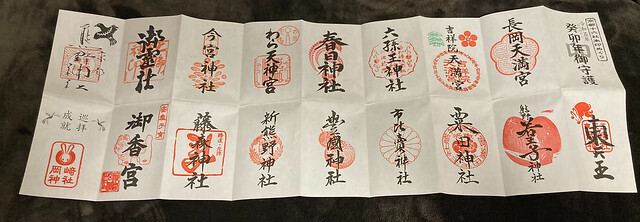 癸卯年御守護
長岡天満宮
吉祥院
天満宮
六孫王神社
春日神社
わら天神宮
今宮神社
御霊社
東天王
熊野
若王子神社
粟田神社
市比賣神社
豊國神社
新熊野神社
藤森神社
御香宮
巡拝
成就
岡崎
神社